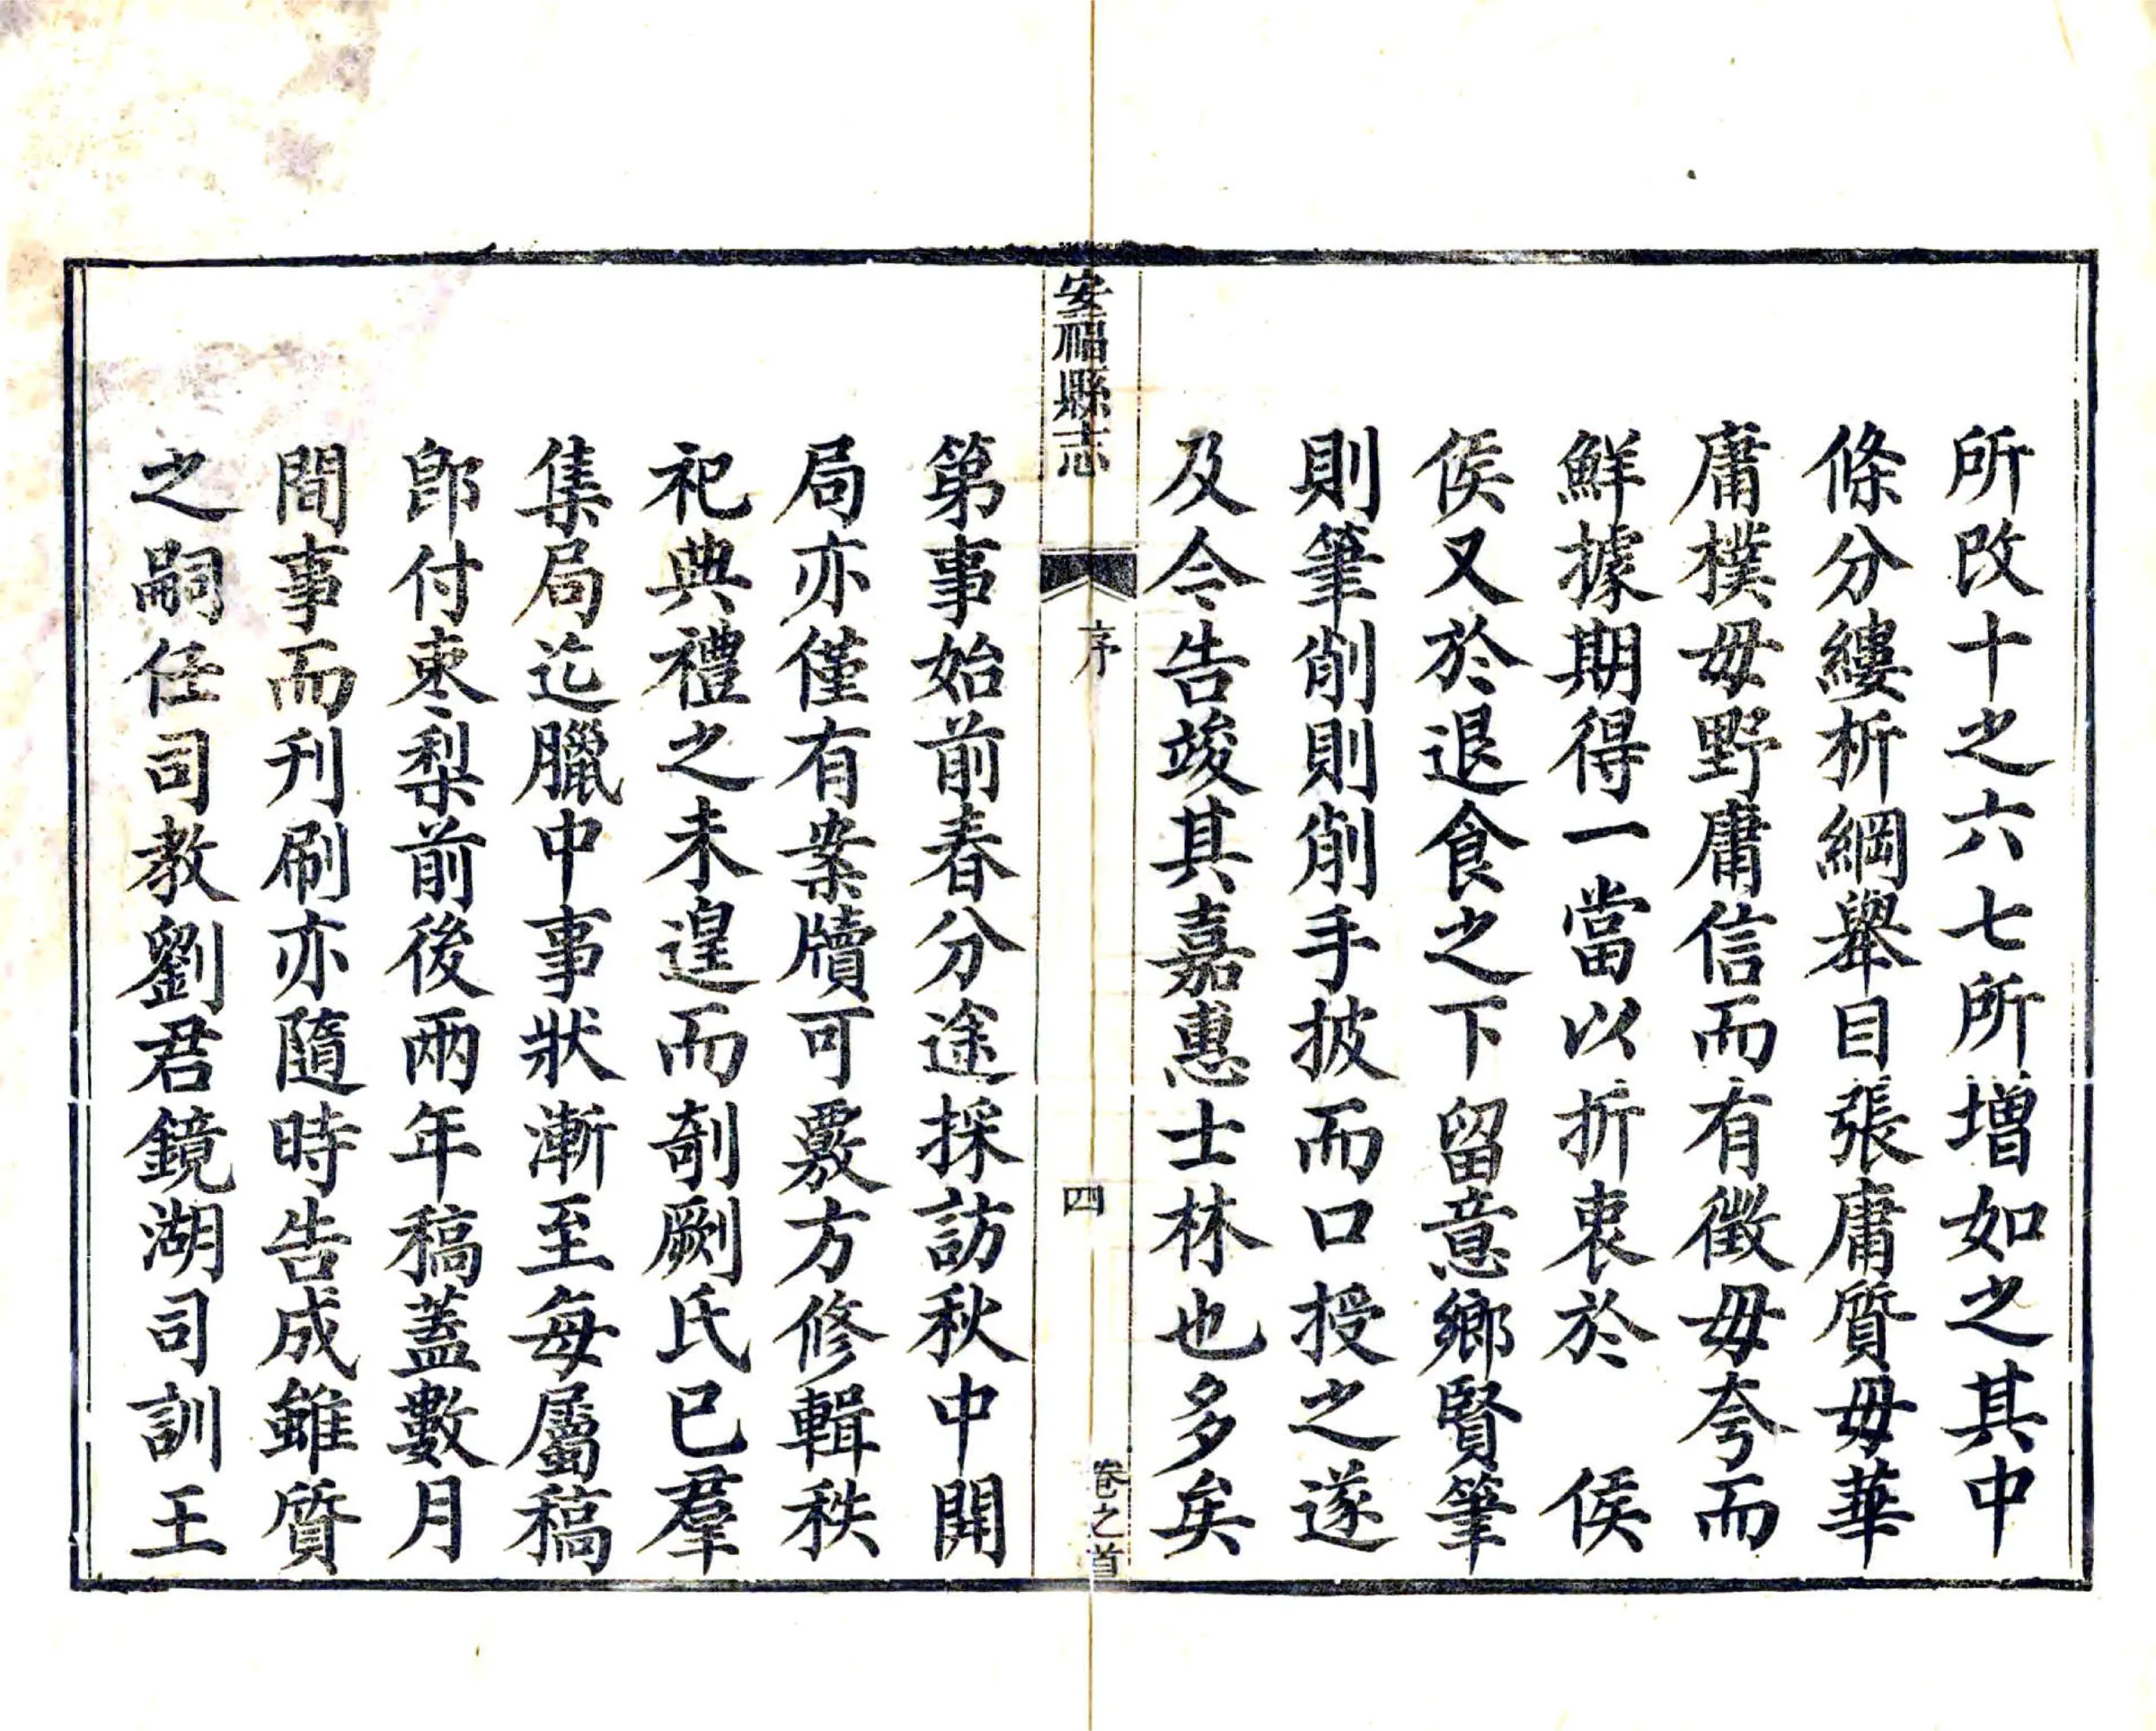 所改十之六七所增如之其中
條分縷析綱舉目張庸質毋華
庸樸毋野庸信而有徵毋夸而
鮮據期得一當以折衷於　侯
侯又於退食之下留意鄉賢筆
則筆削則削手披而口授之遂
及今告竣其嘉惠士林也多矣
安福縣志
序
四
卷之首
第事始前春分途採訪秋中開
局亦僅有案牘可覈方修輯秩
祀典禮之未遑而剞劂氏已羣
集局迄臘中事狀漸至每屬稿
郎付棗梨前後兩年稿蓋數月
間事而刊刷亦隨時告成雖質
之嗣任司教劉君鏡湖司訓王